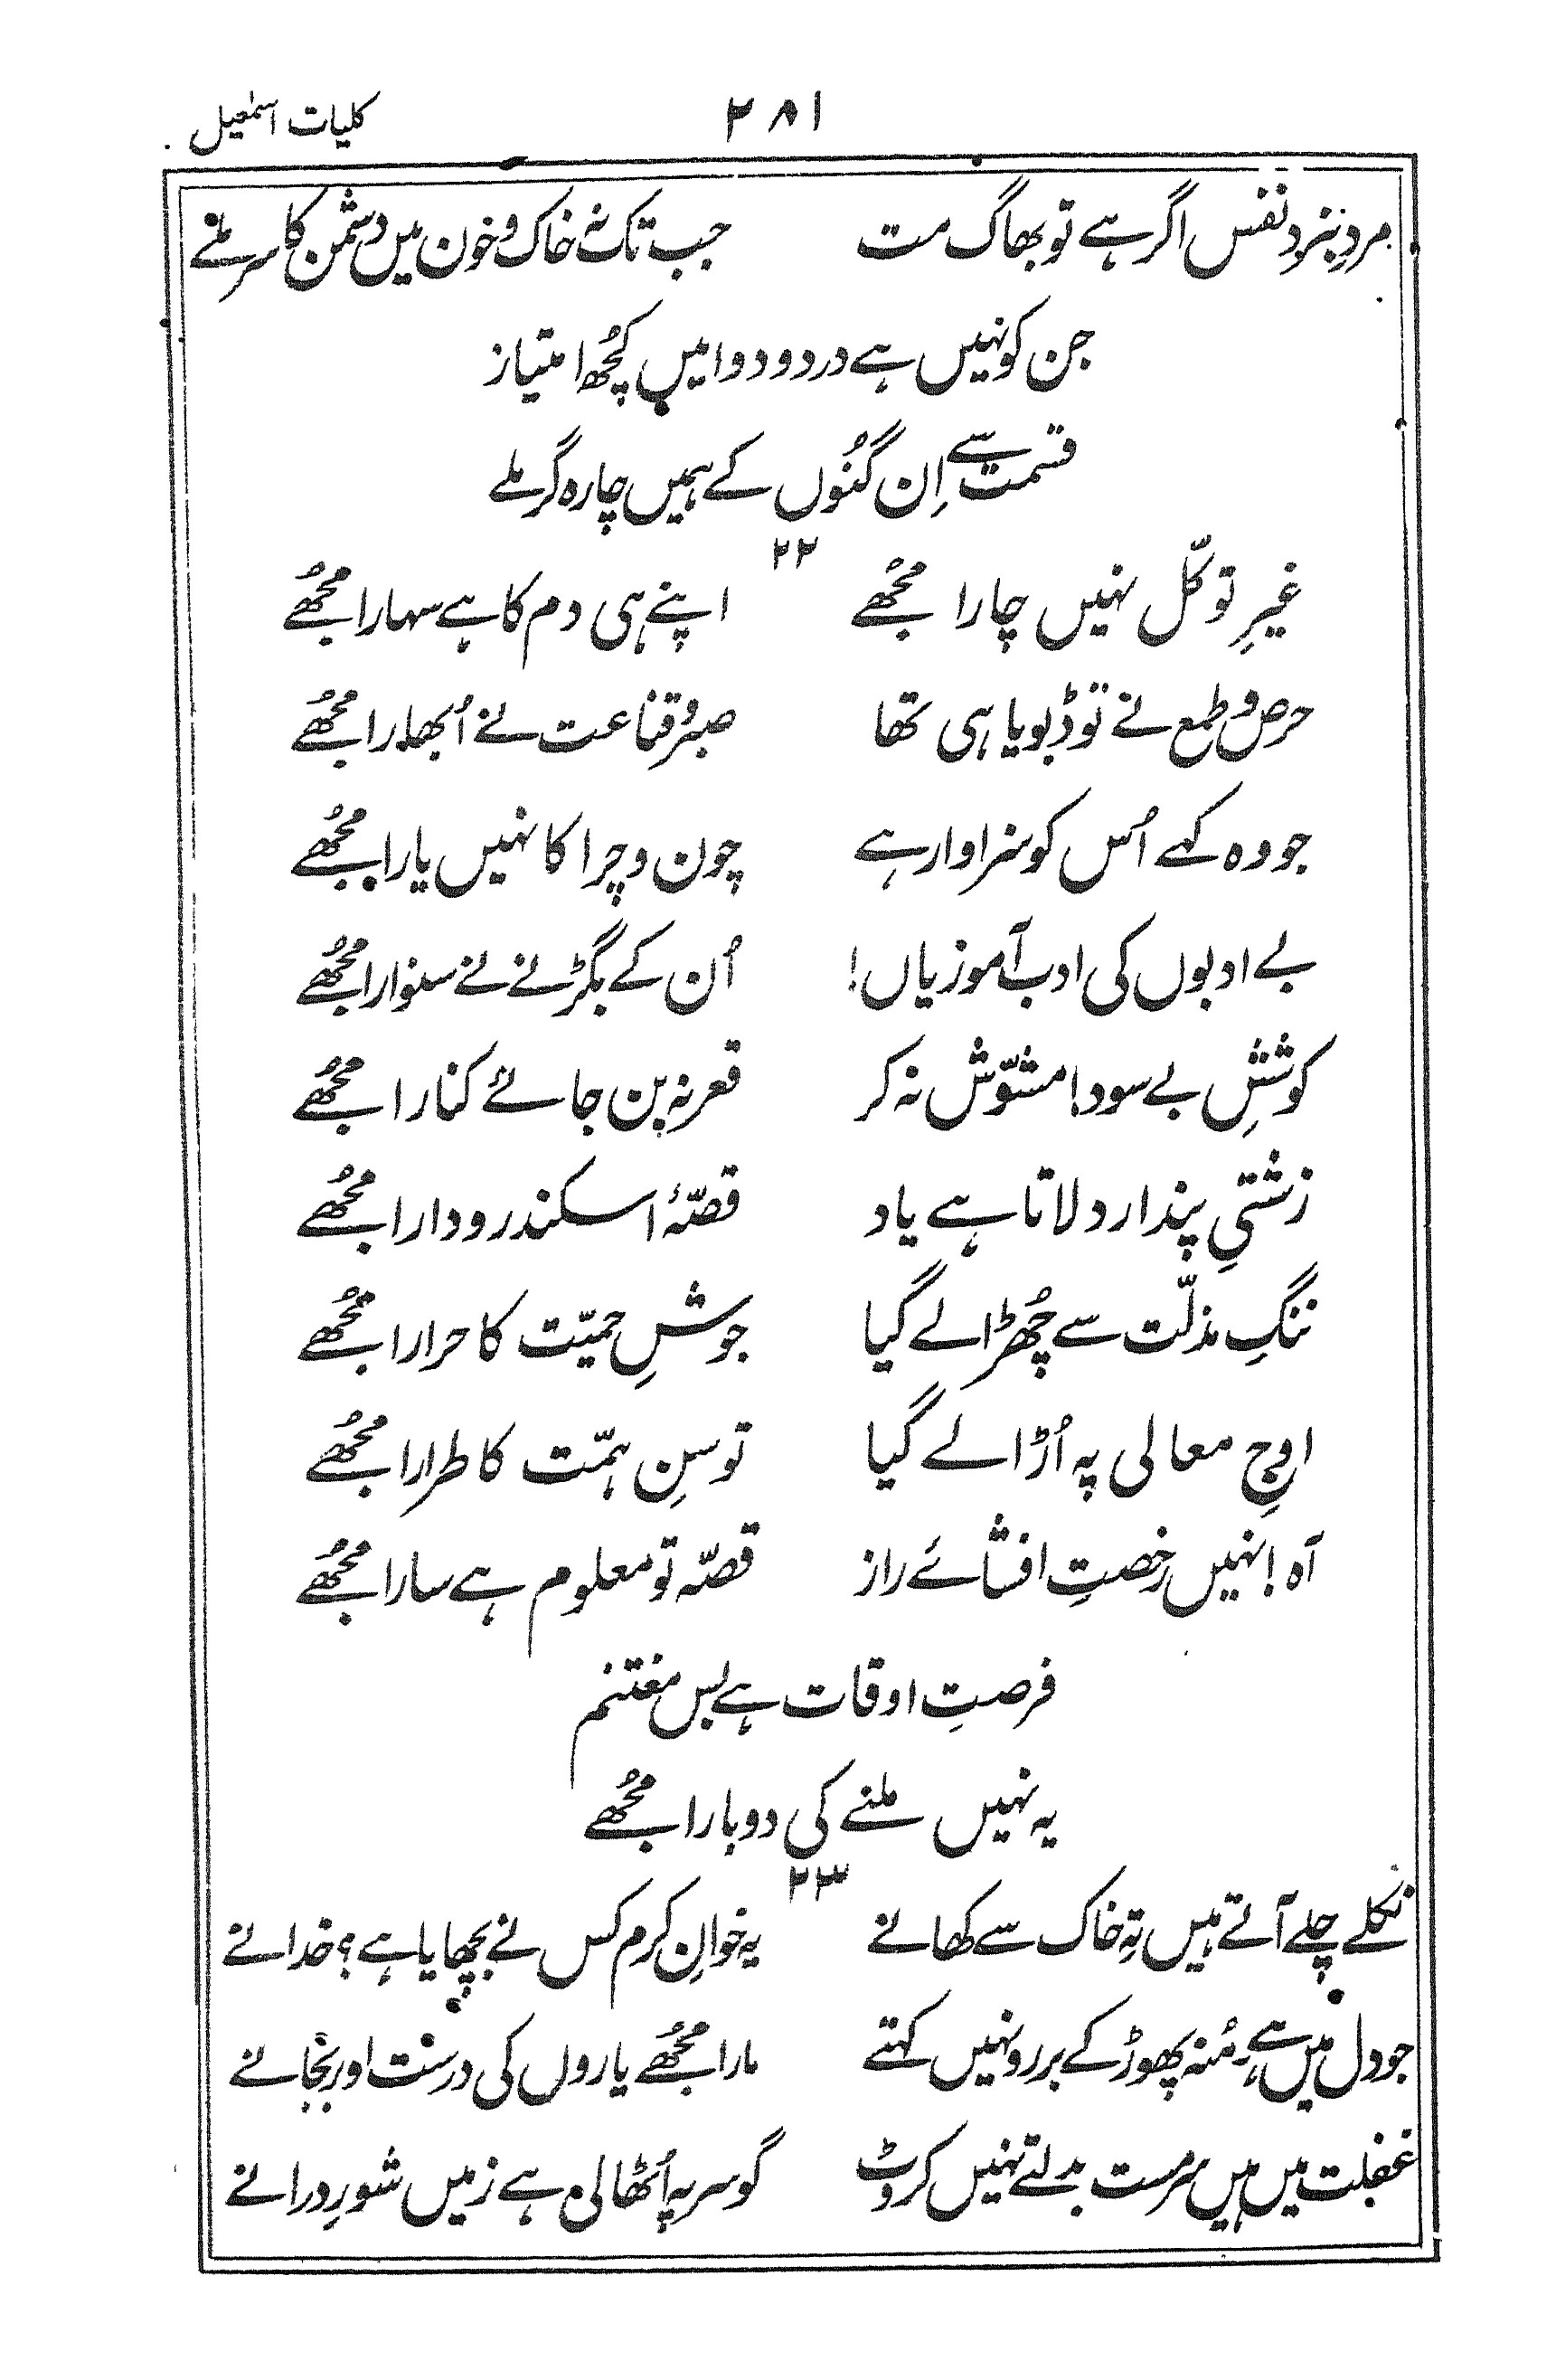 کلیات اسمٰعیل ۲۸۱
مردِ نبردِ نفس اگر ہے تو بھاگ مت جب تک نہ خاک و خون میں دشمن کا سر ملے
جن کو نہیں ہے درد و دوا میں کچُھ امتیاز
قسمت سے اِن گنُوں کے ہمیں چارہ گر ملے
۲۲
غیرِ توکّل نہیں چارا مجُھے اپنے ہی دم کا ہے سہارا مجُھے
حرص و طمع نے تو ڈبویا ہی تھا صبر و قناعت نے اُبھارا مجُھے
جو وہ کہے اُس کو سزاوار ہے چون و چرا کا نہیں یارا مجُھے
بے ادبوں کی ادب آموزیاں! اُن کے بگڑنے نے سنوارا مجُھے
کوششِ بے سود! مشوّش نہ کر قعر نہ بن جائے کنارا مجُھے
زشتیِ پندار دلاتا ہے یاد قصّۂ اسکندر و دارا مجُھے
ننگِ مذلّت سے چُھڑا لے گیا جوشِ حمیّت کا حرارا مجُھے
اوجِ معالی پہ اُڑا لے گیا توسنِ ہمّت کا طرارا مجُھے
آہ! نہیں رخصتِ افشائے راز قصّہ تو معلوم ہے سارا مجُھے
فرصتِ اوقات ہے بس مغتنم
یہ نہیں ملنے کی دوبارا مجُھے
۲۳
نکلے چلے آتے ہیں تہِ خاک سے کھانے یہ خوانِ کرم کس نے بچھایا ہے؟ خدا نے
جو دل میں ہے مُنہ پھوڑ کے بر رو نہیں کہتے مارا مجُھے یاروں کی درست اور بجا نے
غفلت میں ہیں سرمست بدلتے نہیں کروٹ گو سر پہ اُٹھا لی ہے زمیں شورِ درا نے